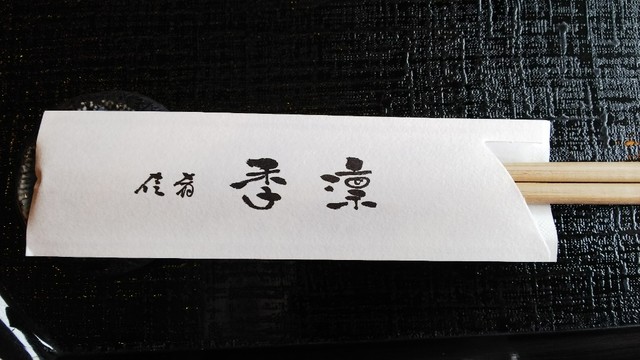 佳肴 季凛